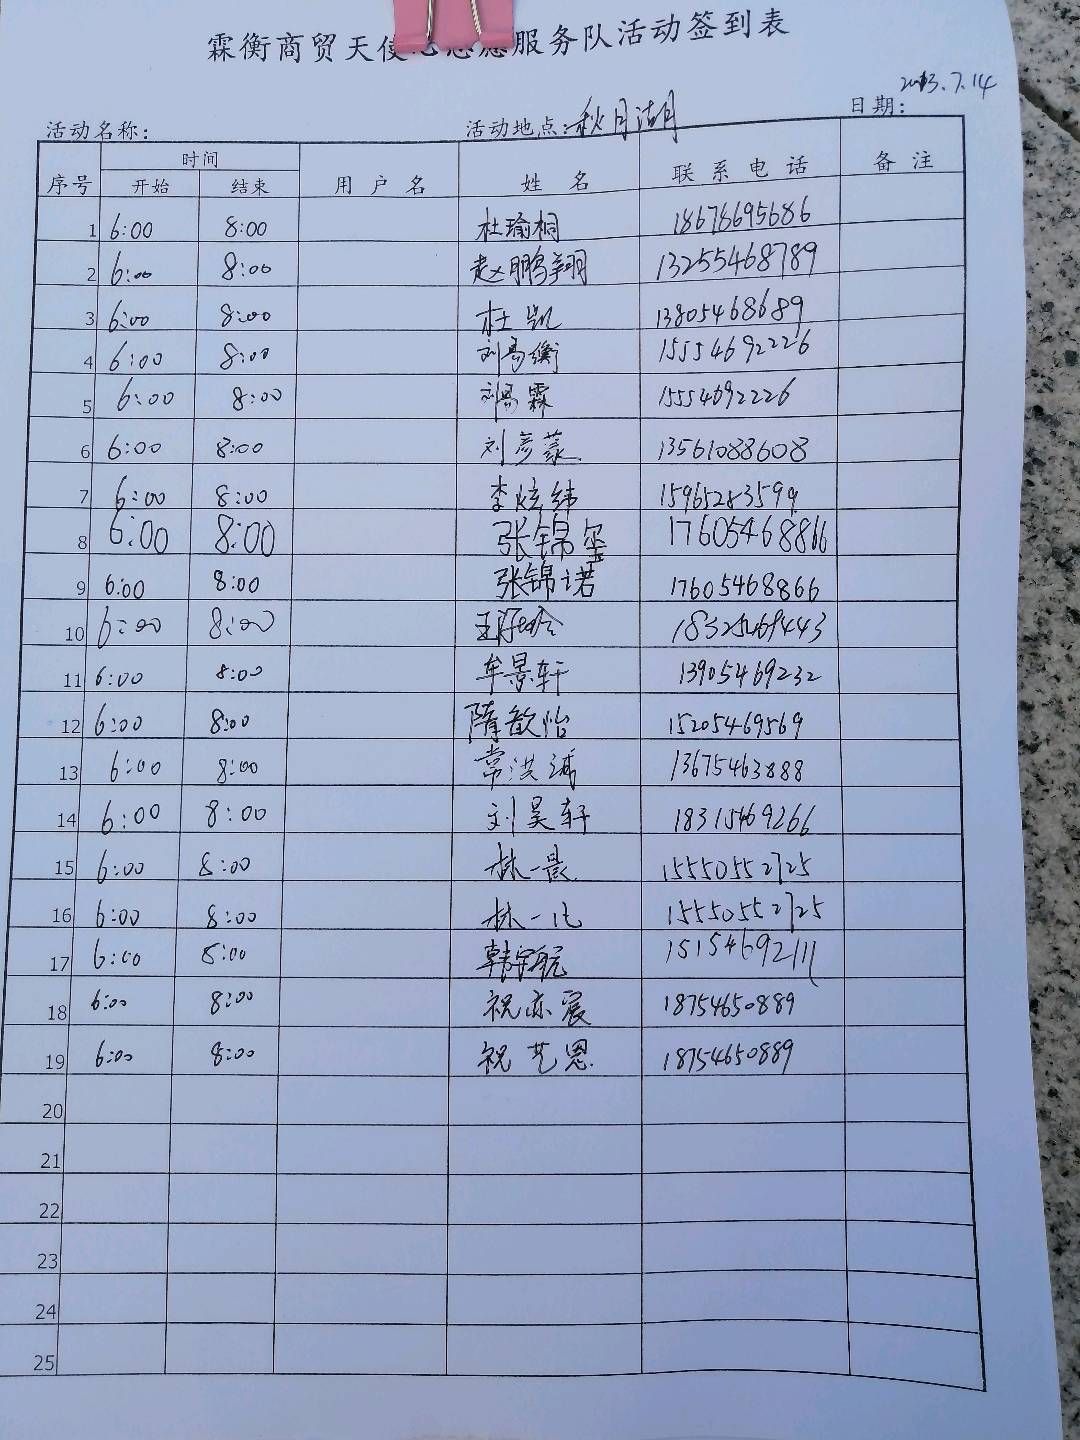 霖衡商贸天使心志愿服务队活动签到表
2023.7.14
活动名称: 活动地点:秋月湖 日期:
序号 时间 用户名 姓名 联系电话 备注
开始 结束
1 6:00 8:00 杜瑜桐 18678695686
2 6:00 8:00 赵鹏翔 13255468789
3 6:00 8:00 杜凯 13805468689
4 6:00 8:00 刘禹衡 15554692226
5 6:00 8:00 刘禹霖 15554692226
6 6:00 8:00 刘彦蒙 13561088608
7 6:00 8:00 李炫纬 15965283599
8 6:00 8:00 张锦玺 17605468866
9 6:00 8:00 张锦诺 17605468866
10 6:00 8:00 18325469443
11 6:00 8:00 牟景轩 13905469232
12 6:00 8:00 隋歆怡 15205469569
13 6:00 8:00 常洪诚 13675463888
14 6:00 8:00 刘昊轩 18315469266
15 6:00 8:00 林一晨 15550552725
16 6:00 8:00 林一 15550552725
17 6:00 8:00 韩宇航 15154692111
18 6:00 8:00 祝亦宸 18754650889
19 6:00 8:00 祝艺恩 18754650889
20
21
22
23
24
25